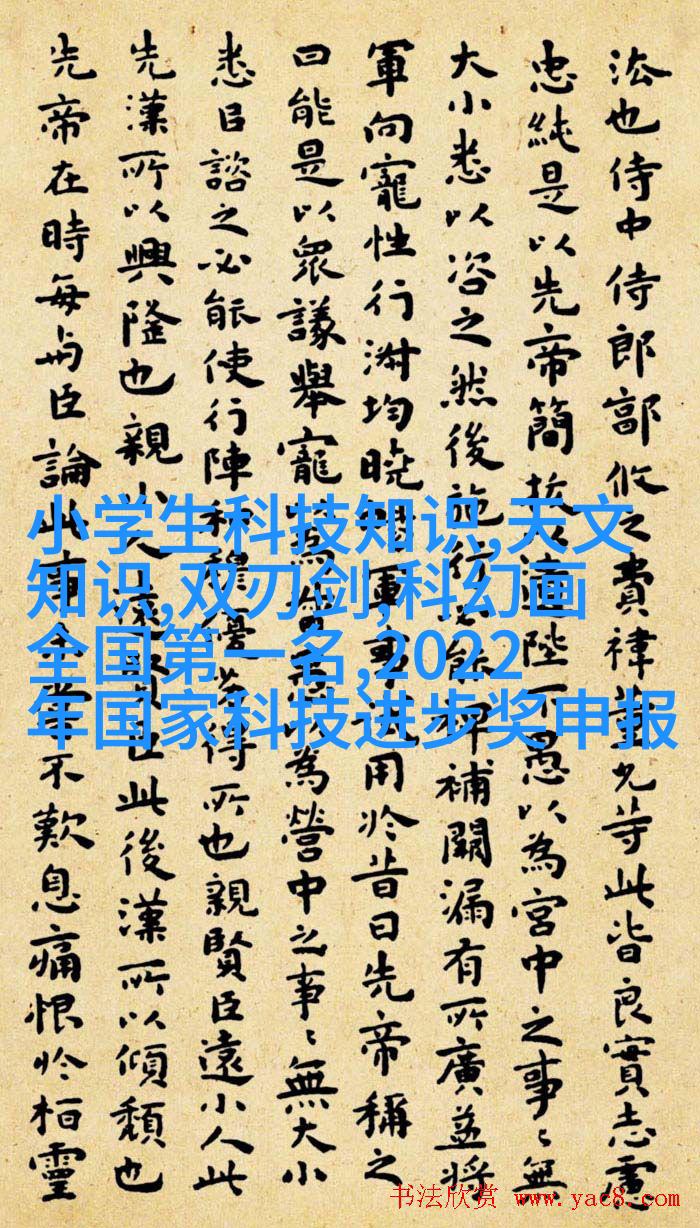 法也侍中侍郎郭攸之費禕董允等此皆良實志慮
忠純是以先帝簡拔以遺陛下愚以為宮中之事〻無
大小悉以咨之然後施行必能裨補闕漏有所廣益將
軍向寵性行淑均曉暢軍事試用於昔日先帝稱之
曰能是以衆議舉寵為督愚以為營中之事〻無大小
悉以諮之必能使行陣和穆優劣得所也親賢臣遠小人此
先漢所以興隆也親小人遠賢臣此後漢所以傾頹也
先帝在時每与臣論此事未嘗不歎息痛恨於桓靈
小学生科技知识,天文
知识,双刃剑,科幻画
全国第一名,2022
年国家科技进步奖申报
书法欣赏 www.yac8.com